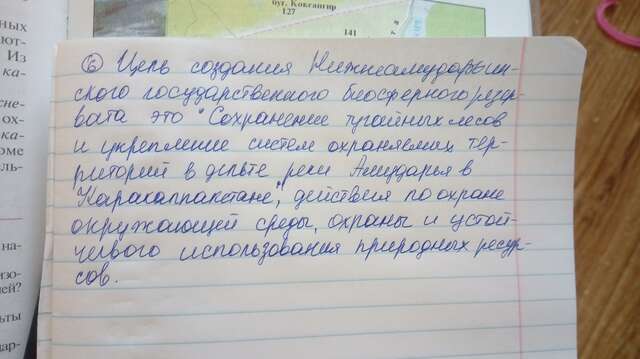 буг. Коксенгир
127
141
ных
ют-
Из
ка-
сне-
ох-
ка-
оме
ль-
⑥ Цель создания Нижнеамударьин-
ского государственного биосферного резер-
вата это "Сохранение тугайных лесов
и укрепление систем охраняемых тер-
риторий в дельте реки Амударья в
Каракалпакстане", действия по охране
окружающей среды, охраны и устой-
чевого использования природных ресур-
сов.
на-
изо-
ней?
ьты
дар-